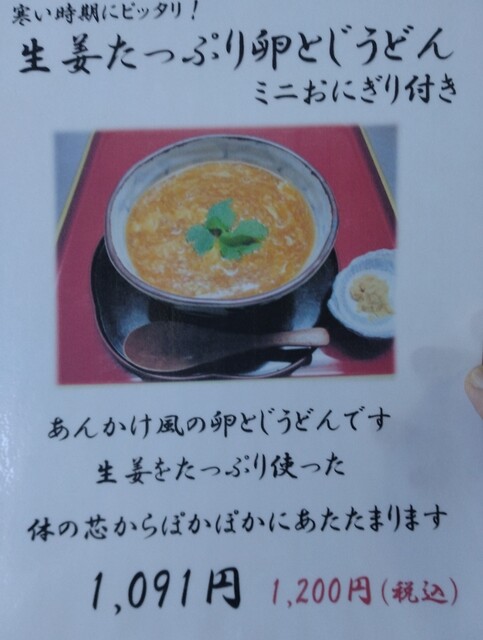 寒い時期にピッタリ!
生姜たっぷり卵とじうどん
ミニおにぎり付き
あんかけ風の卵とじうどんです
生姜をたっぷり使った
体の芯からぽかぽかにあたたまります
1,091円 1,200円(税込)